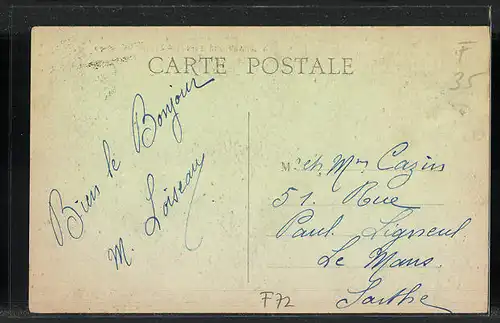 CARTE POSTALE
Bien le Bonjour
M. Loiseau
M. et Mme Cazin
51. Rue
Paul Ligneul
Le Mans
Sarthe
F72
F
35